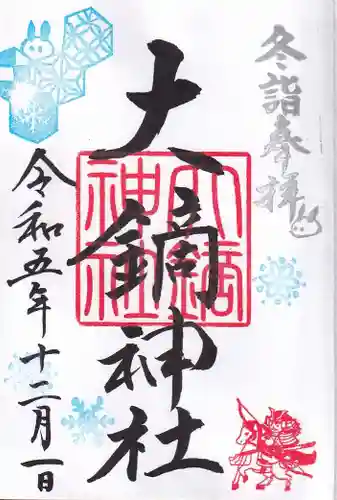 冬詣奉拝
大鏑神社
令和五年十二月一日